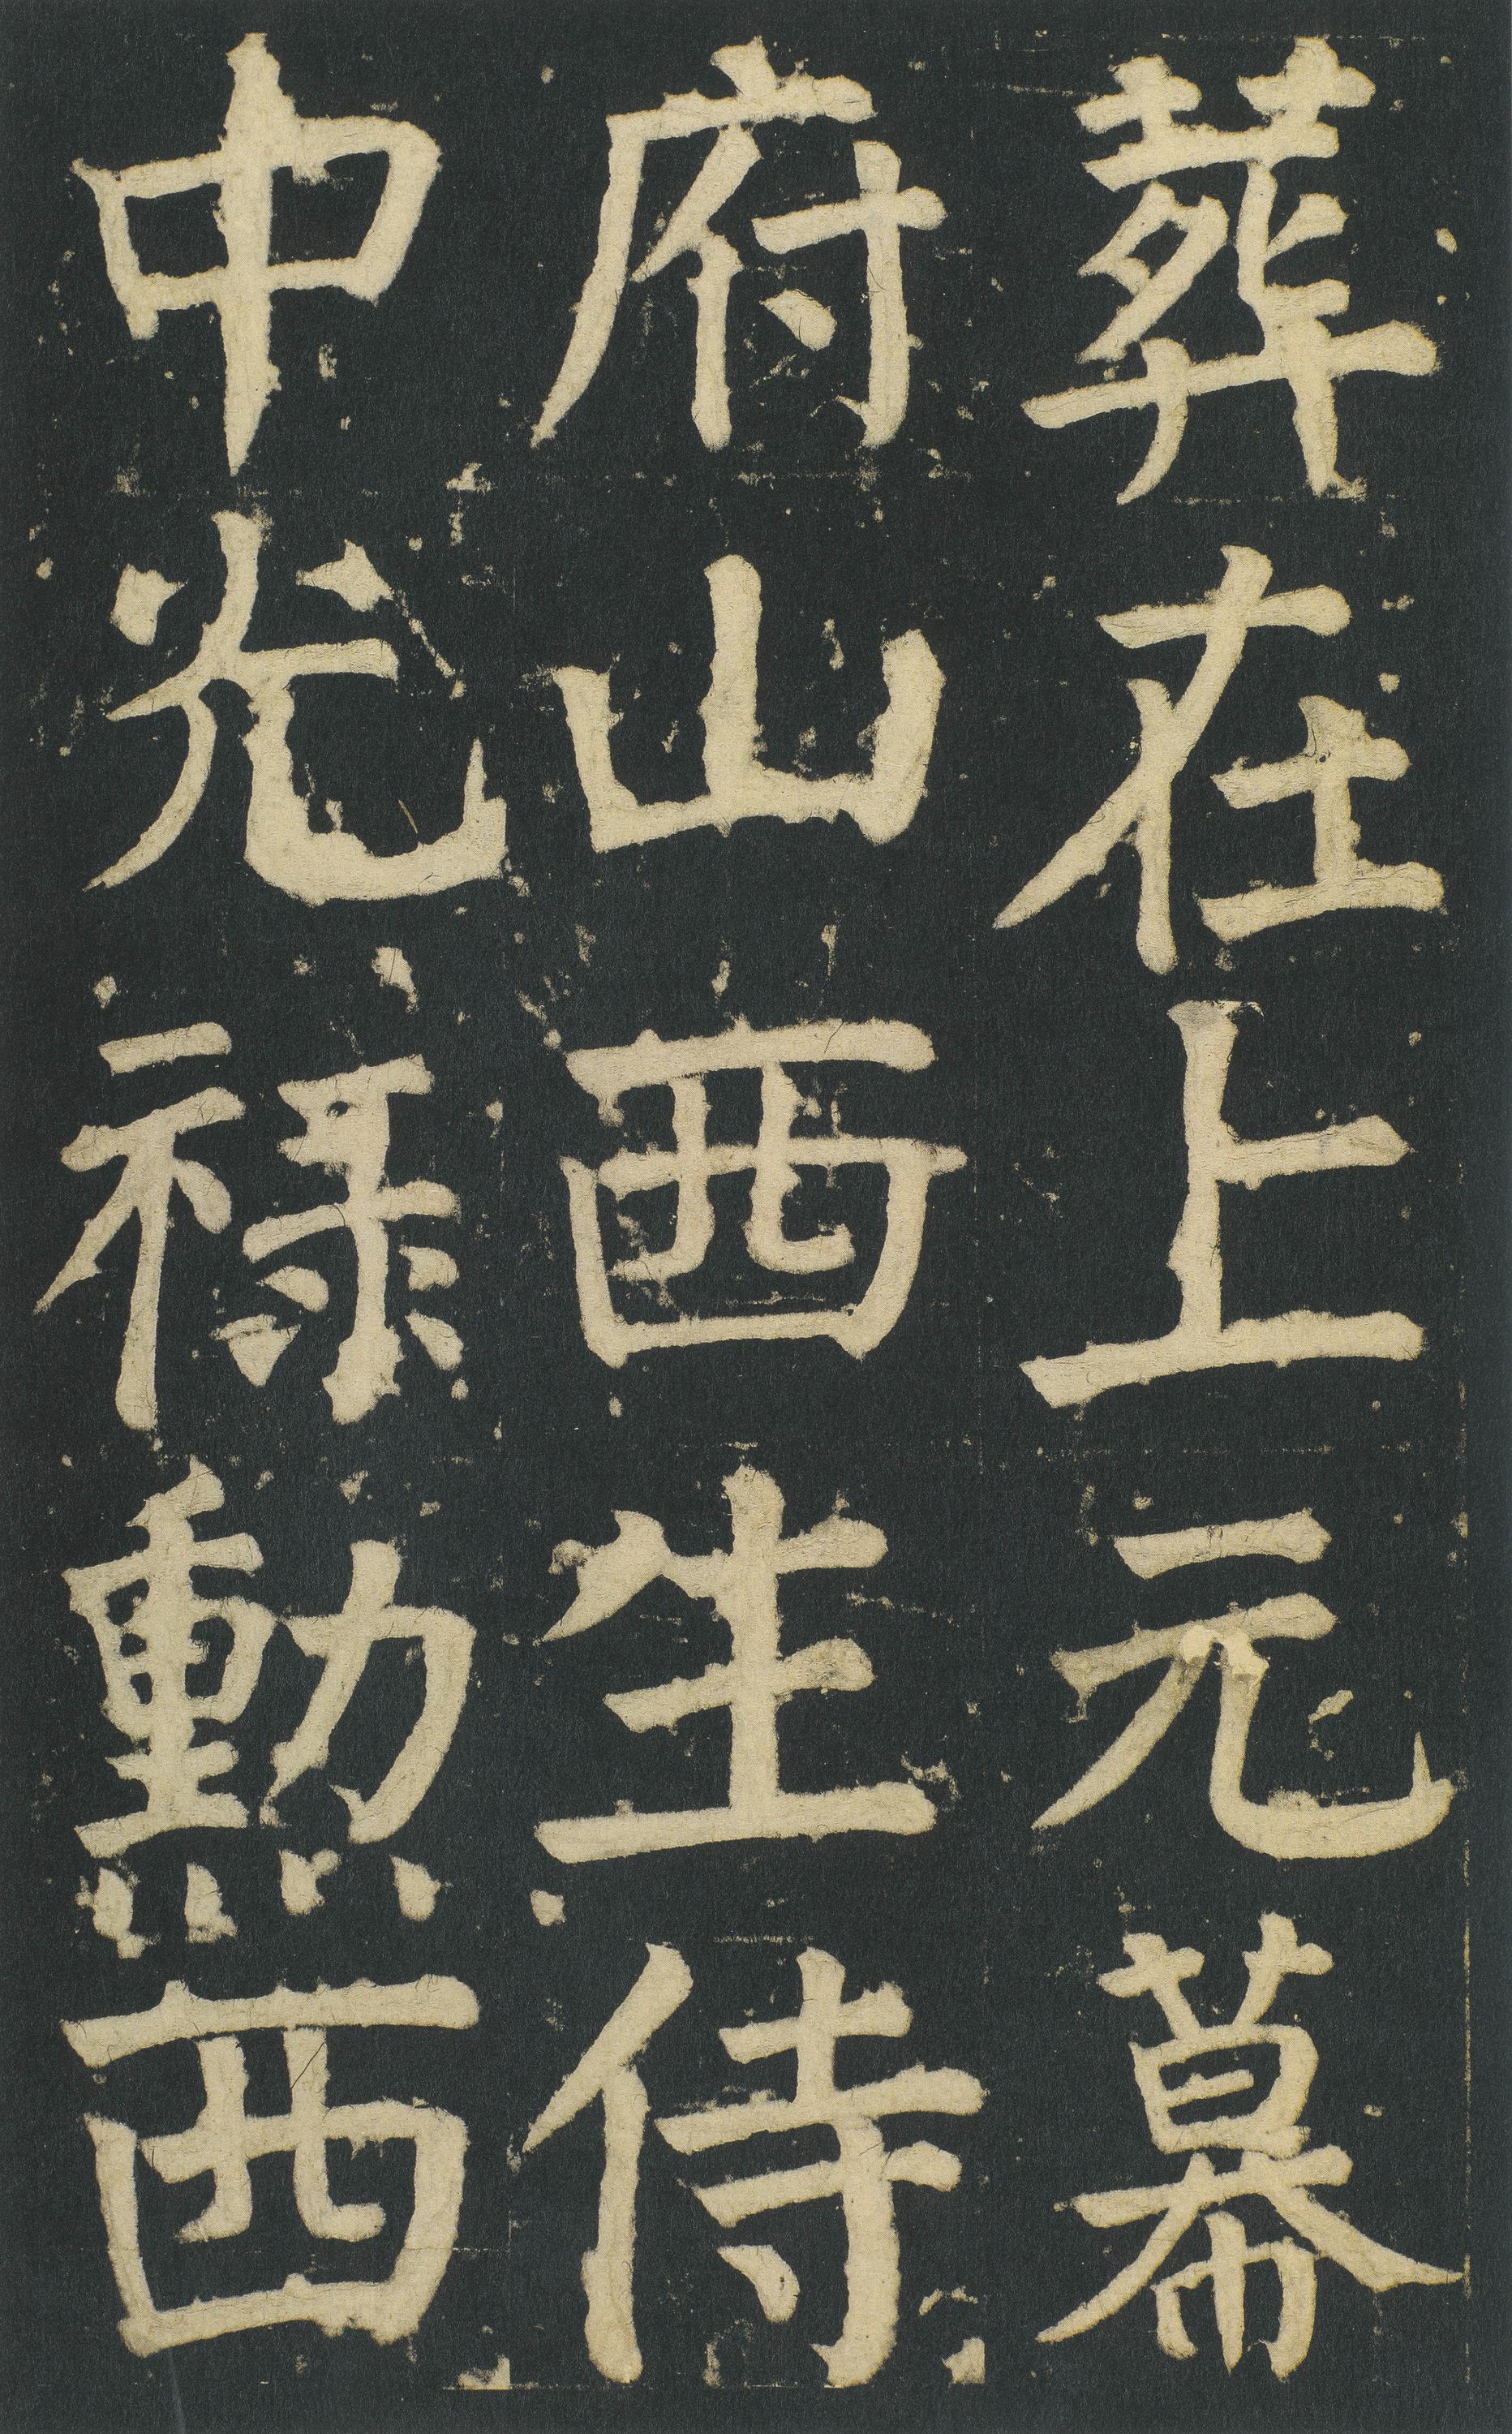 葬在上元幕
府山西生侍
中光禄勳西